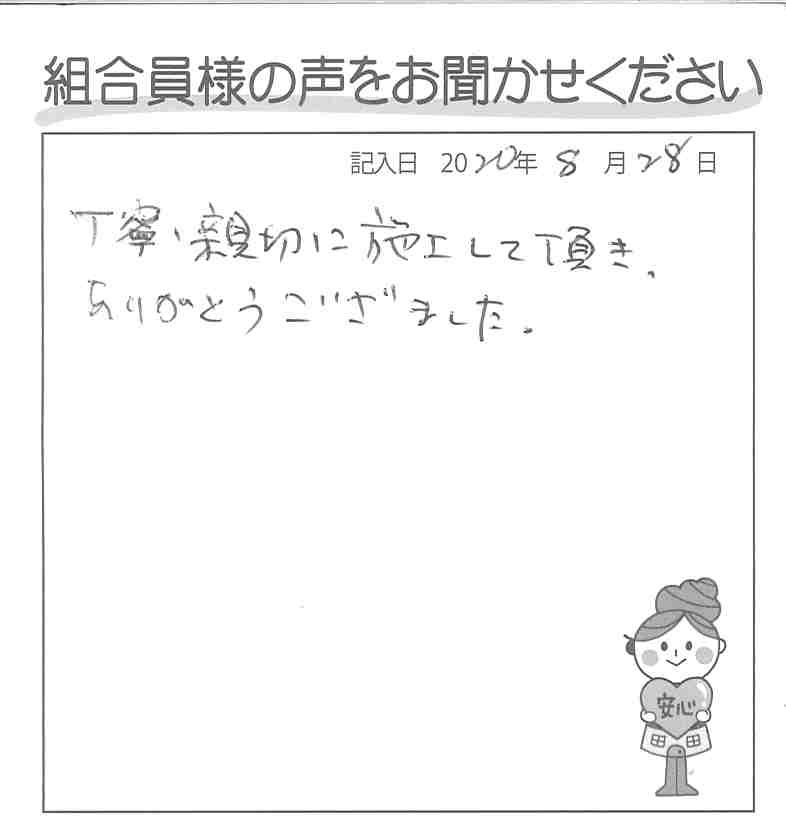 組合員様の声をお聞かせください
記入日 2020年 8月28日
丁寧、親切に施工して頂き、
ありがとうございました。
安心